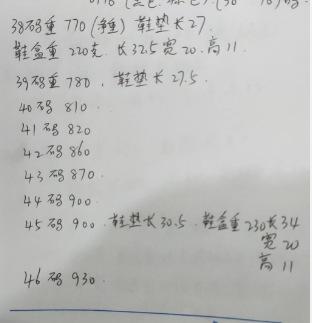 38码重 770 (净重) 鞋垫长27.
鞋盒重 220克. 长32.5 宽 20. 高 11
39码重 780, 鞋垫长 27.5
40码 810
41码 820
42码 860
43码 870
44码 900
45码 900. 鞋垫长30.5. 鞋盒重 230 长34
宽 20
高 11
46码 930